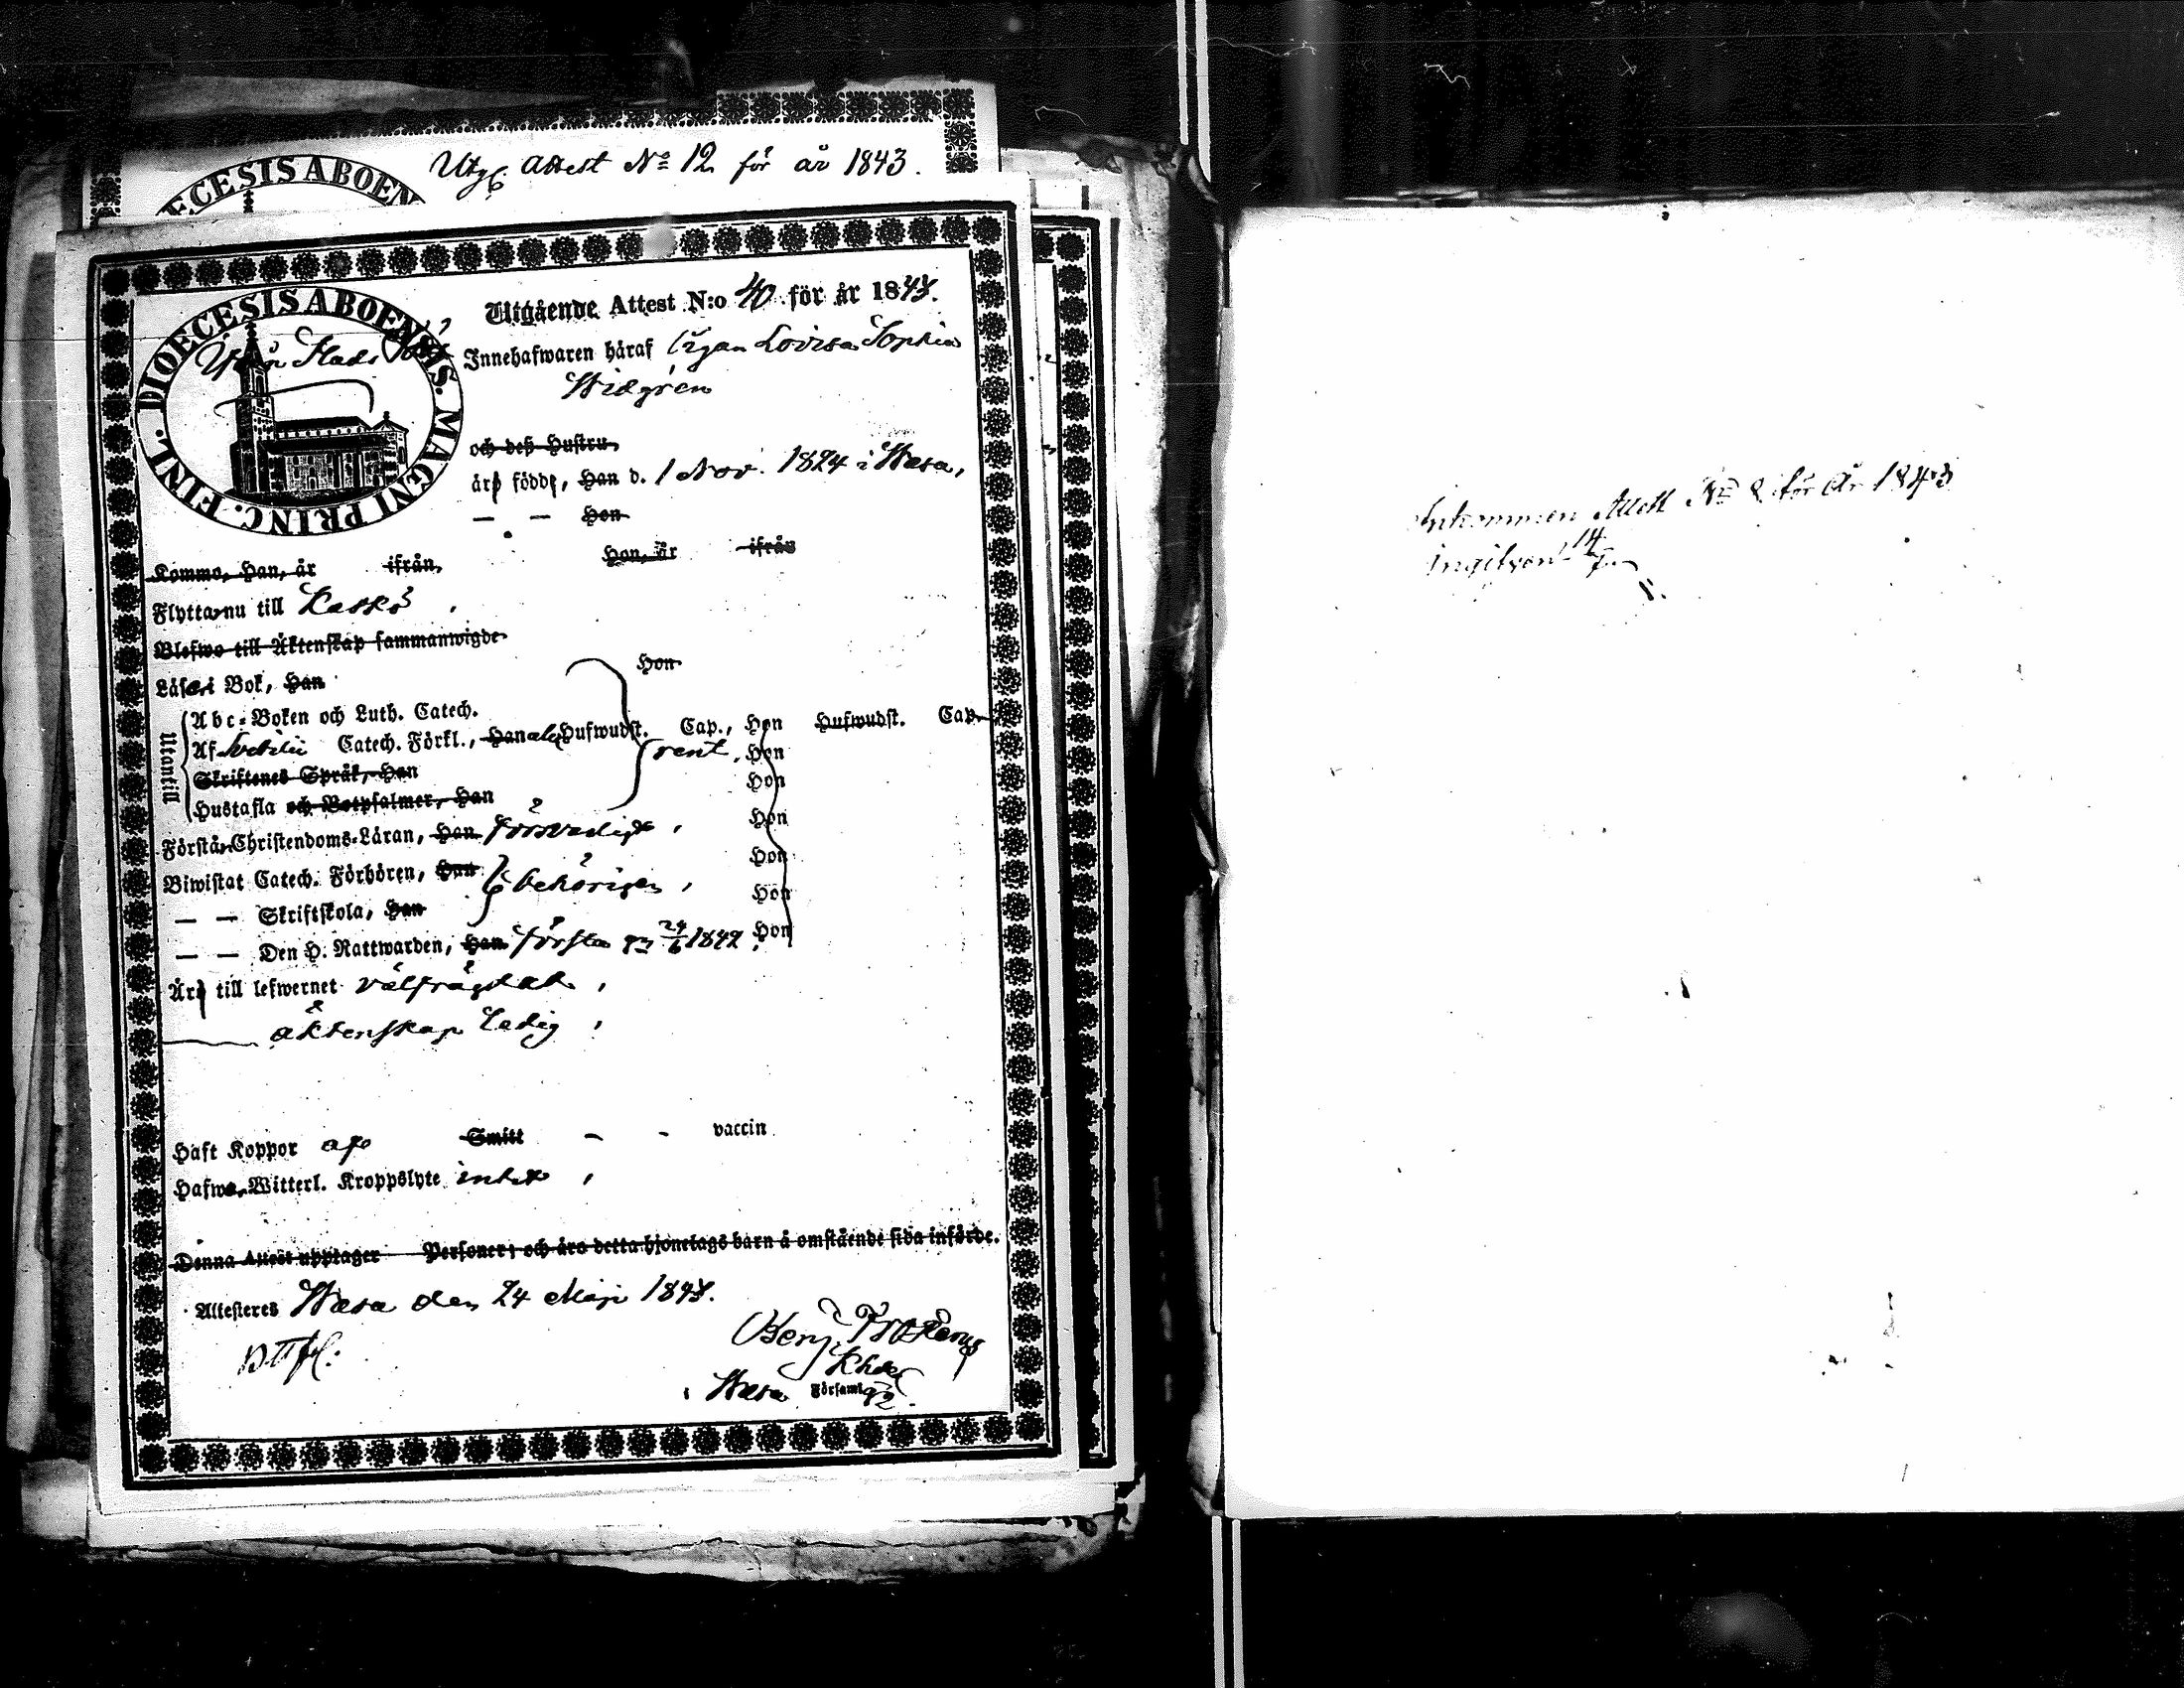 Utg. Attest No 12 för år 1843.
ECESIS ABOEN
DIOECESIS ABOENSIS. MAGNI PRINC. FINL.
Utgående Attest N:o 40 för år 1843.
Innehafwaren häraf Pigan Lovisa Sophia
Widgrén
och deß Hustru
äro födde, Han d. 1 Nov. 1824 i Wasa,
— — Hon
Kommo, Han, år ifrån, Hon, år ifrån
Flytta nu till Kaskö,
Blefwo till Äktenskap sammanwigde
Läser i Bok, Han Hon
Utantill
Abc-Boken och Luth. Catech.
Af Svebilii Catech. Förkl., Han Hufwudst. Cap., Hon Hufwudst. Cap.
rent, Hon
Skriftenes Språk, Han Hon
Hustafla och Botpsalmer, Han
Förstår Christendoms-Läran, Han försvarligt, Hon
Biwistat Catech. Förhören, Han behörigen, Hon
— — Skriftskola, Han Hon
— — Den H. Nattwarden, Han första gn 24/6 1842, Hon
Äro till lefwernet välfrägdad,
äktenskap ledig,
Haft Koppor Smitt - - vaccin
Hafwa Witterl. Kroppslyte intet,
Denna Attest upptager Personer; och äro detta hjonelags barn å omstående sida införde.
Attesteres Wasa den 24 Maji 1843.
Benj. Frosterus
Wasa Församl.
Inkommen Attest No 8 för År 1843
ingifven 14/7